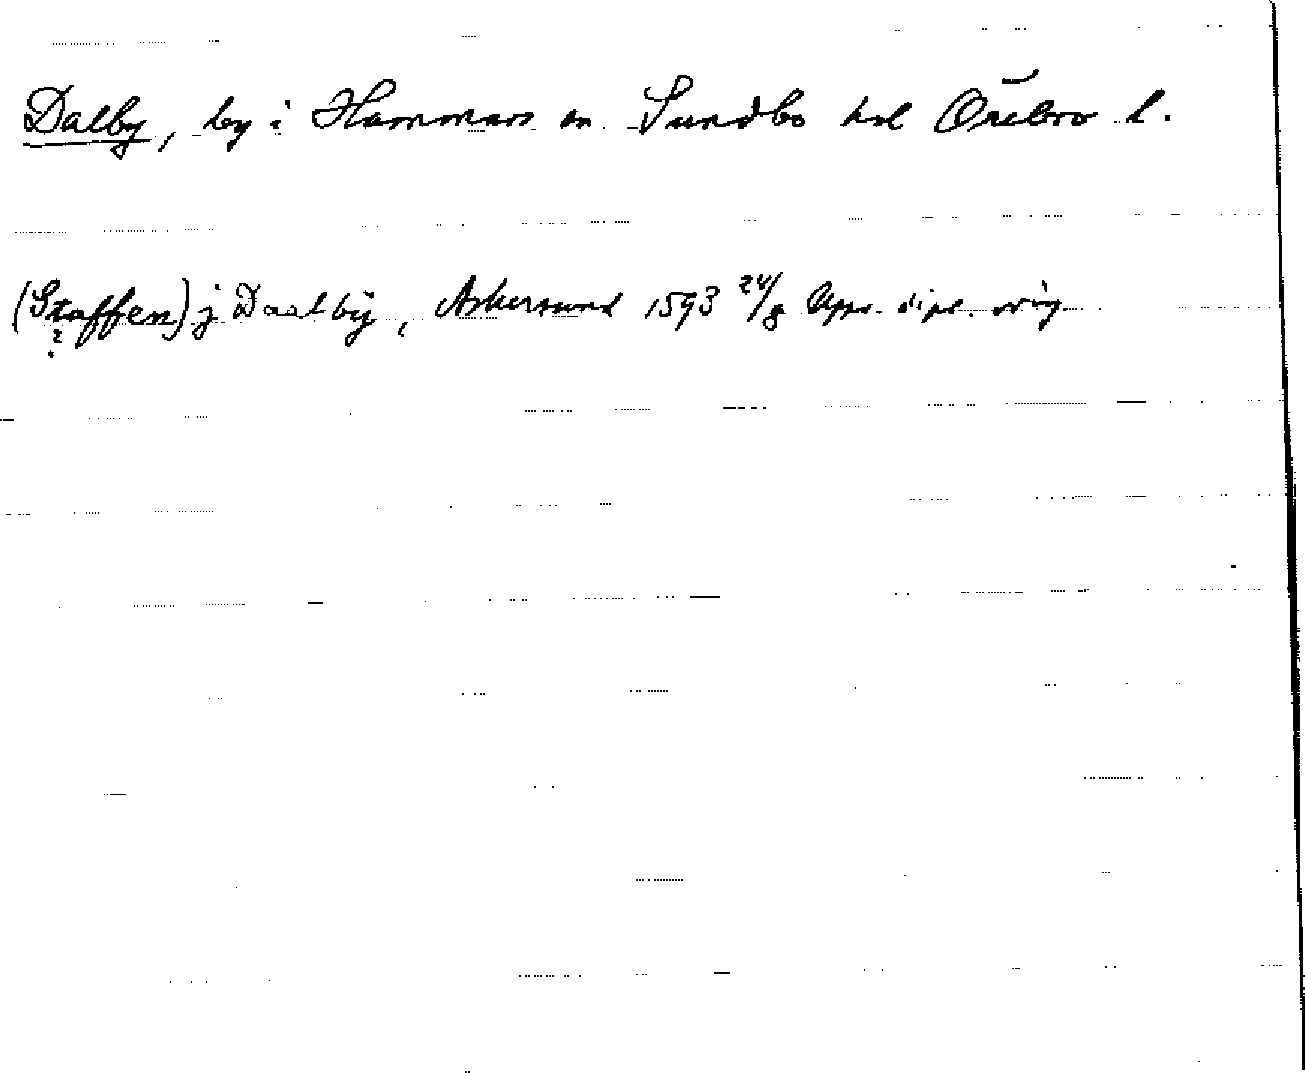 Dalby, by i Hammars sn Sundbo hd Örebro l.
(Staffen) j Daalbÿ, Askersund 1593 24/8 Upps. dipl. orig.
?